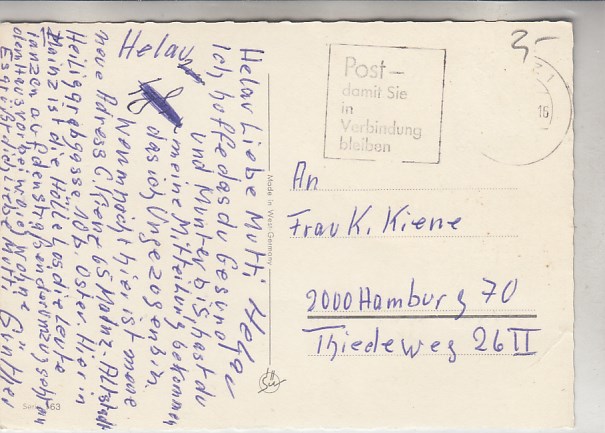 Helau
Helau Liebe Mutti Helau
Ich hoffe das du Gesund
und Munter bis, hast du
meine Mitteilung bekommen
das ich Umgezogen bin
Wenn nicht hier ist meine
neue Adress
Mainz-Altstadt
Heiliggrabgasse 10 b. Hier in
Mainz ist die Hölle Los die Leute
Tanzen auf den straßen
dem Haus vorbei wo ich Wohne
Es grüßt dich Liebe Mutti Günther
Post–
damit Sie
in
Verbindung
bleiben
16
3,-
An
Frau K. Kiene
2000 Hamburg 70
Thiedeweg 26 II
Made in West-Germany
Serie 63